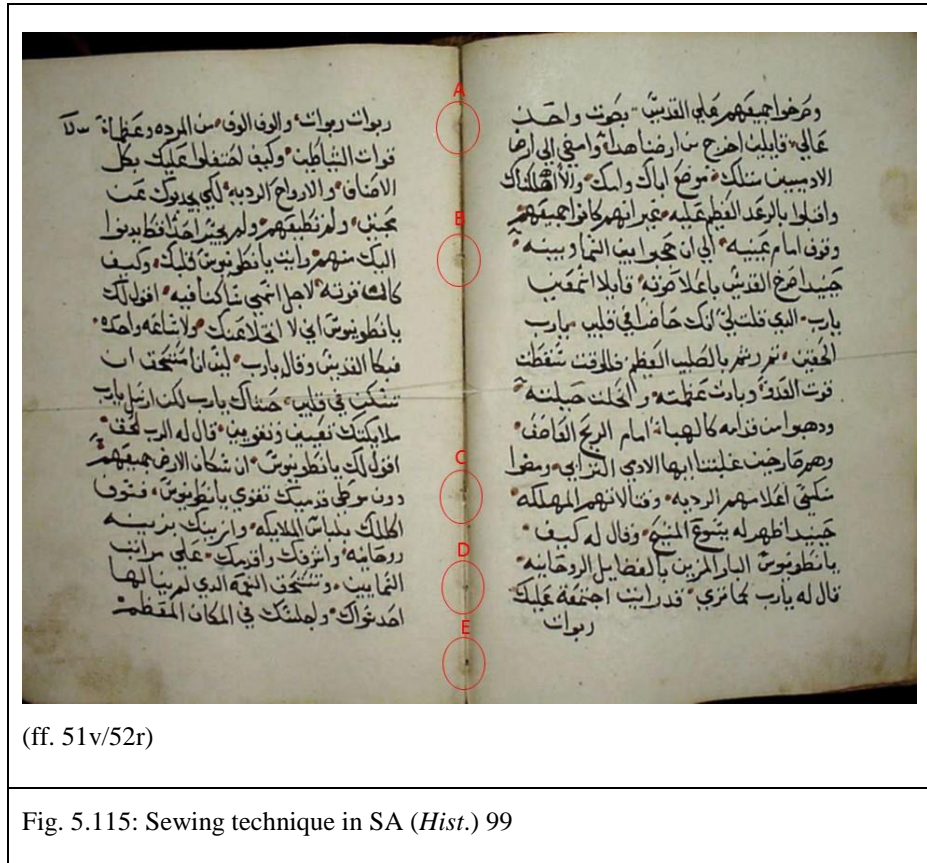 وصرخوا جميعهم علي القديس بصوت واحد
عالي قايلين اخرج من ارضنا هدا وامضي الي ارض
الادميين متلك موضع اباك وامك والا اهلكناك
واقبلوا بالرعد العظيم عليه غير انهم كانوا جميعهم
وقوف امام عينيه الي ان بين السما وبينه
حينيد صرخ القديس باعلا صوته قايلا اسمعني
يارب الدي قلت لي انك حاضرا في قلبي يارب
الحقني تم رشم بالصليب العظيم فللوقت سقطت
قوت العدو وبادت عظمته وانحلت حيلته
ودهبوا من قدامه كالهبا امام الريح العاصف
وهم صارخين غلبتنا ايها الادمي الترابي ومضوا
منكسي اعلامهم الرديه وقتالاتهم المهلكه
حينيد اظهر له يسوع المسيح وقال له كيف
يا نطونيوس البار المزين بالفضايل الروحانيه
قال له يارب كما تري قد رايت اجتمعة عليك
ربوات
ربوات ربوات والوف الوف من المرده وعظماة
قوات الشياطين وكيف احتفلوا عليك بكل
الاصناف والارواح الرديه لكي يحديوك عن
محبتي ولم تطيعهم ولم يجسر احدا قط يدنوا
اليك منهم ورايت يانطونيوس قلبك وكيف
كانت قوته لاجل اسمي ساكنا فيه اقول لك
يانطونيوس اني لا اتخلا عنك ولا ساعه واحده
فبكا القديس وقال يارب ليس انا مستحق ان
تسكن في قلبي حسناك يارب لكن ارسل يارب
ملايكتك تعينني وتقويني قال له الرب الحق
اقول لك يانطونيوس ان سكان الارض جميعهم
دون موطي قدميك تقوي يانطونيوس فسوف
اكللك بلباس الملايكه وازينك بزينه
روحانيه واشرفك واقدمك علي مراتب
السماييين وتستحق النعمه الدي لم ينالها
احد سواك ولجلستك في المكان المعظم
A
B
C
D
E
(ff. 51v/52r)
Fig. 5.115: Sewing technique in SA (Hist.) 99